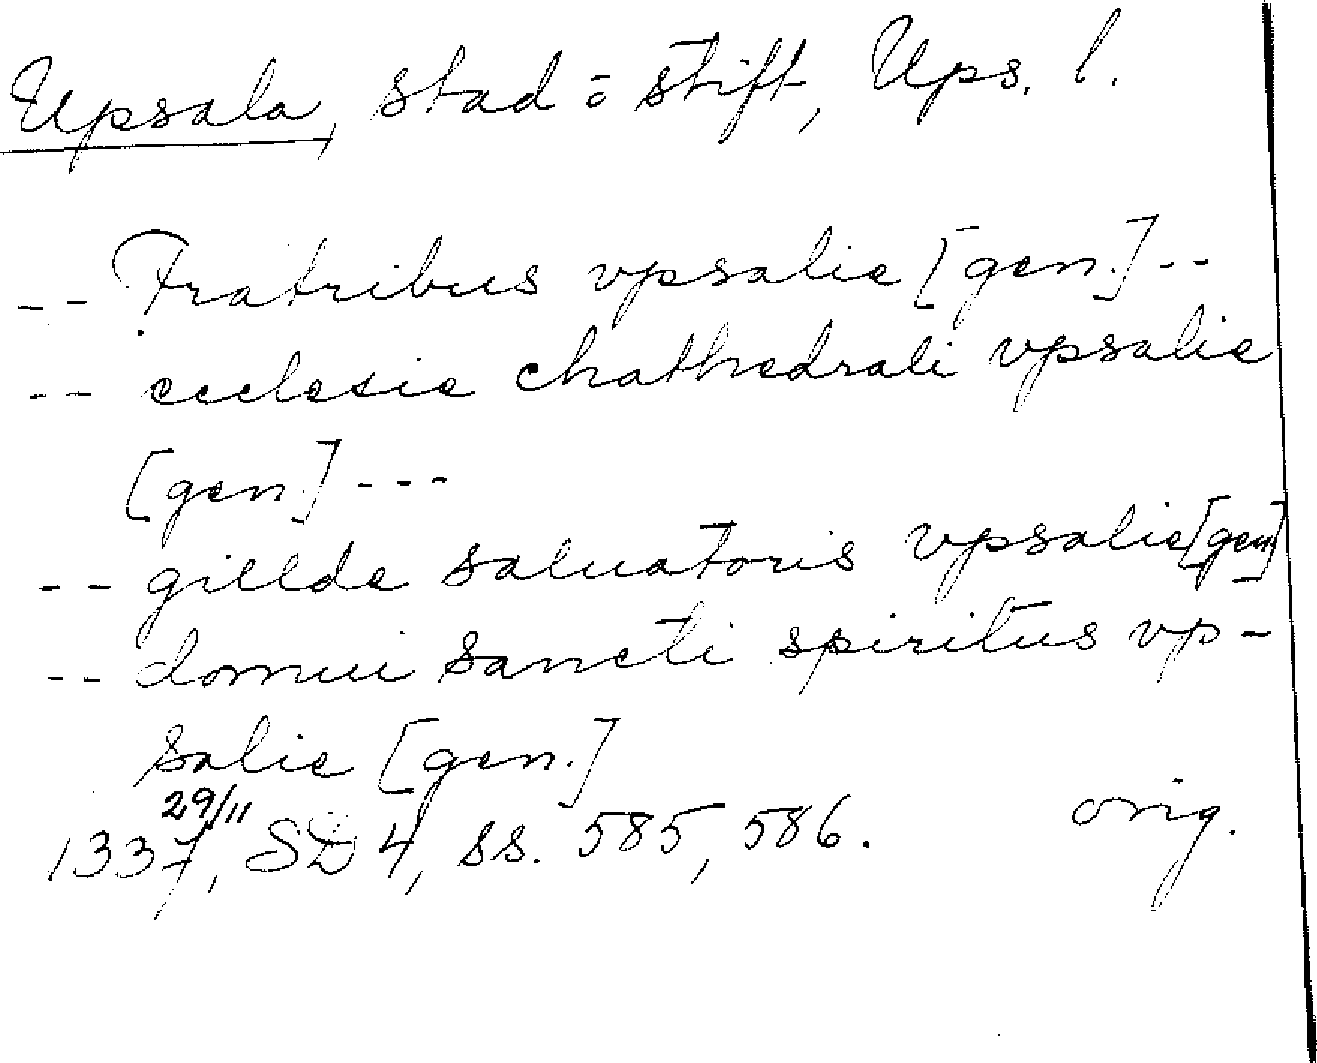 Upsala, stad o stift, Ups. l.
-- Fratribus vpsalie [gen.] --
-- ecclesie chathedrali vpsalie
[gen.] ---
-- gillde saluatoris vpsalie [gen]
-- domui sancti spiritus vp-
salie [gen.]
1337 29/11, SD 4, ss. 585, 586. orig.